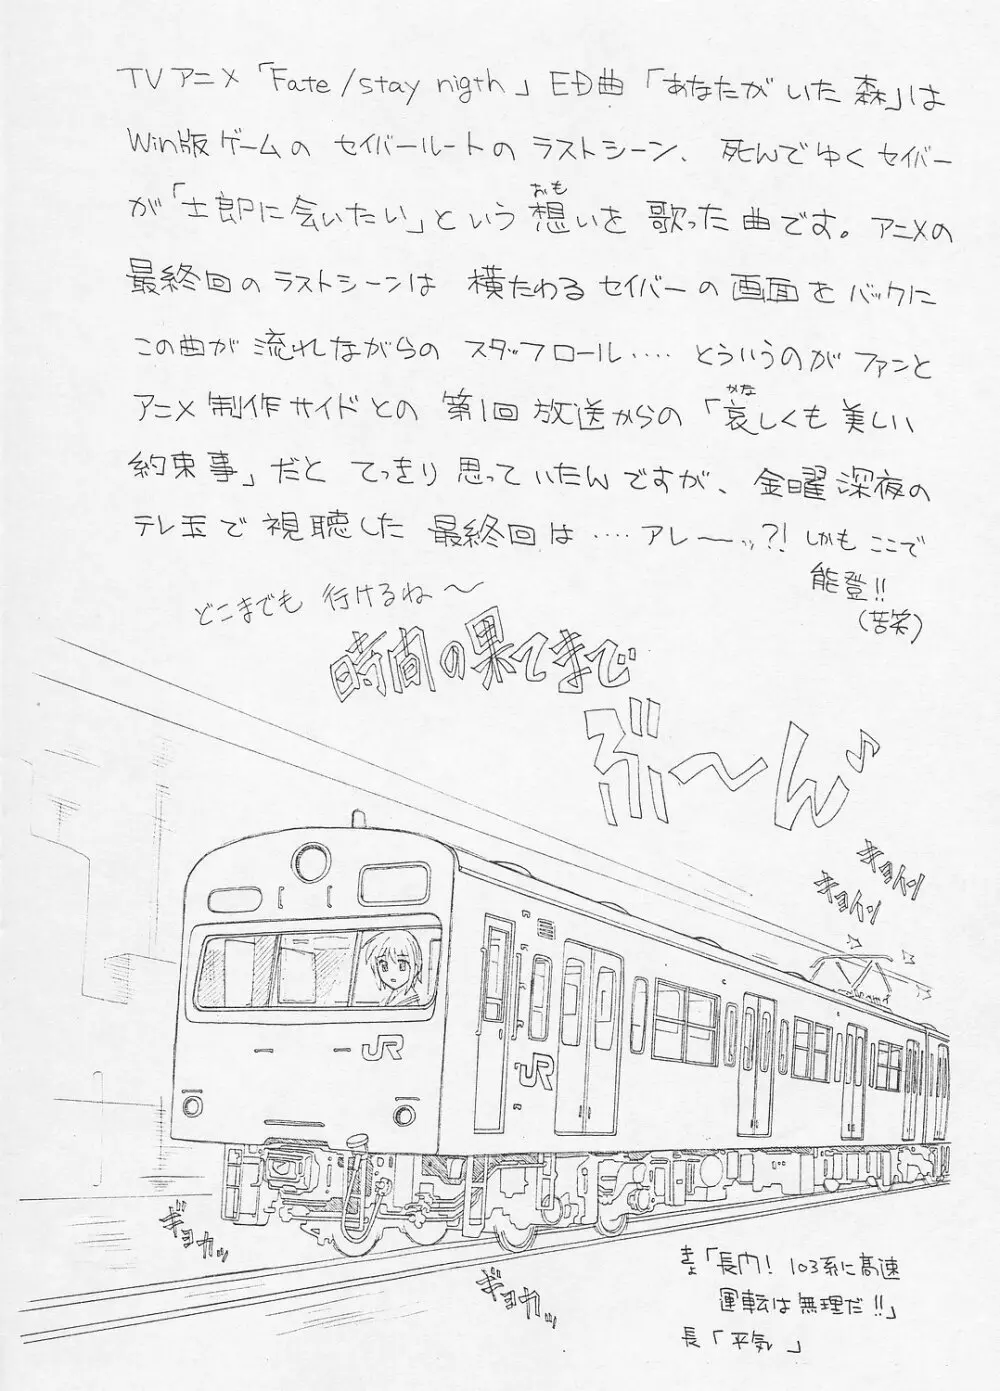 TVアニメ「Fate/stay nigth」ED曲「あなたがいた森」は
Win版ゲームの セイバールートの ラストシーン、死んでゆくセイバー
が「士郎に会いたい」という 想いを 歌った曲です。アニメの
おも
最終回のラストシーンは 横たわるセイバーの画面をバックに
この曲が 流れながらの スタッフロール‥‥ とういうのがファンと
アニメ制作サイドとの 第1回放送からの「哀しくも美しい
かな
約束事」だと てっきり思っていたんですが、金曜深夜の
テレ玉で視聴した 最終回は ‥‥ アレーッ?! しかもここで
能登!!
(苦笑)
どこまでも 行けるね〜
時間の果てまで
ぶ〜ん♪
ギョイン
ギョイン
JR
JR
ギョカッ
ギョカッ
「長門! 103系に高速
運転は無理だ!!」
長「平気」